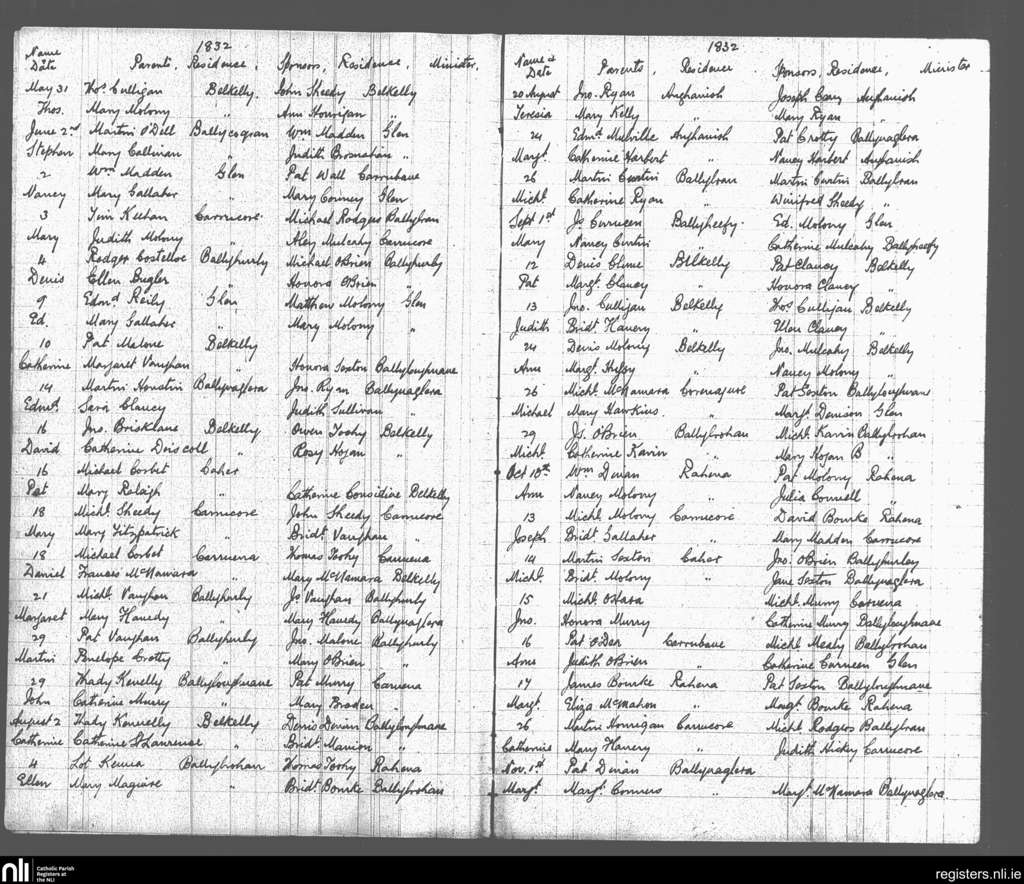 1832
Name & Date Parents, Residence, Sponsors, Residence, Minister,
May 31 Thos. Culligan Belkelly. John Sheedy Belkelly
Thos. Mary Molony " Ann Horrigan "
June 2nd Martin O'Dell Ballycogran Wm Madden Glen
Stephen Mary Callinan " Judith Brosnahan "
2 Wm Madden Glen Pat Wall Carrubane
Nancy Mary Gallaher " Mary Conney Glen
3 Tim Keehan Carrucore Michael Rodgers Ballybran
Mary Judith Molony " Aley Mulcahy Carrucore
4 Rodger Costelloe Ballyhurly Michael O'Brien Ballyhurly
Denis Ellen Bugler " Honora O'Brien "
9 Edmd Reily Glen Matthew Molony Glen
Ed. Mary Gallaher " Mary Molony "
10 Pat Malone Belkelly
Catherine Margaret Vaughan " Honora Sexton Ballyloughnane
14 Martin Houstin Ballynaglera Jno. Ryan Ballynaglera
Edmd. Sara Clancy " Judith Sullivan "
16 Jno. Brisklane Belkelly Owen Toohy Belkelly
David Catherine Driscoll " Rosy Hogan "
16 Michael Corbet Caher
Pat Mary Raleigh " Catherine Considine Belkelly
18 Michl. Sheedy Carrucore John Sheedy Carrucore
Mary Mary Fitzpatrick " Bridt. Vaughan "
18 Michael Corbet Carruena Thomas Toohy Carruena
Daniel Frances McNamara " Mary McNamara Belkelly
21 Michl. Vaughan Ballyhurly Js Vaughan Ballyhurly
Margaret Mary Hanedy " Mary Hanedy Ballynaglera
29 Pat Vaughan Ballyhurly Jno. Malone Ballyhurly
Martin Penelope Crotty " Mary O'Brien "
29 Thady Kenelly Ballyloughnane Pat Murry Caruena
John Catherine Murry " Mary Broder "
August 2 Thady Kennelly Belkelly Denis Dinan Ballyloughnane
Catherine Catherine St Lawrence " Bridt. Manion "
4 Lot Kenna Ballybrohan Thomas Toohy Rahena
Ellen Mary Maguire " Bridt. Bourke Ballybrohan
1832
Name & Date Parents, Residence Sponsors, Residence, Minister
20 August Jno. Ryan Aughanish Joseph Cary Aughanish
Teresia Mary Kelly " Mary Ryan "
24 Edmd. Mulville Aughanish Pat Crotty Ballynaglera
Margt. Catherine Harbert " Nancy Harbert Aughanish
26 Martin Curtin Ballybran Martin Curtin Ballybran
Michl. Catherine Ryan " Winifred Sheedy "
Sept 1st Js Curneen Ballyheefy. Ed. Molony Glen
Mary Nancy Curtin " Catherine Mulcahy Ballyheefy
12 Denis Clune Belkelly Pat Clancy Belkelly
Pat Margt. Clancy " Honora Clancy "
13 Jno. Culligan Belkelly Thos. Culligan Belkelly
Judith Bridt. Hanery " Ellen Clancy "
24 Denis Molony Belkelly Jno. Mulcahy Belkelly
Ann Margt. " Nancy Molony "
26 Michl. McNamara Pat Sexton Ballyloughnan
Michael Mary Hawkins. " Margt. Denison Glen
29 Js. O'Brien Ballybrohan Michl. Kavin Ballybrohan
Michl. Catherine Kavin " Mary Hogan B "
Oct 10th Wm Dinan Rahena Pat Molony Rahena
Ann Nancy Molony " Julia Connell "
13 Michl. Molony Carrucore David Bourke Rahena
Joseph Bridt Gallaher " Mary Madden Carrucore
14 Martin Sexton Caher Jno. O'Brien Ballyhurley
Michl. Bridt. Molony " Jane Sexton Ballynaglera
15 Michl. O'Hara Michl. Murry Caruena
Jno. Honora Murry Catherine Murry Ballyloughnane
16 Pat O'Dea Carrubane Michl Mealy Ballybrohan
Anne Judith O'Brien " Catherine Curneen Glen
17 James Bourke Rahena Pat Sexton Ballyloughnane
Margt. Eliza McMahon " Margt Bourke Rahena
26 Martin Horrigan Carrucore Michl Rodgers Ballybran
Catherine Mary Hanery " Judith Hickey Carrucore
Nov. 1st Pat Dinan Ballynaglera
Margt. Margt. Conners " Margt. McNamara Ballynaglera.
nli Catholic Parish Registers at the NLI
registers.nli.ie